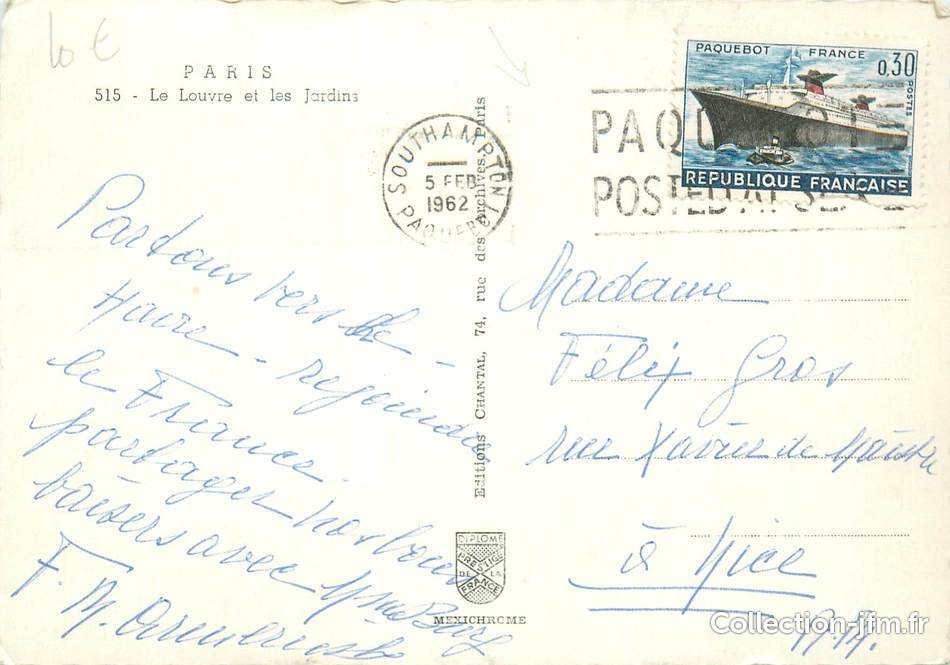 10 €
PARIS
515 - Le Louvre et les Jardins
Partons vers le
Havre - rejoindre
le France.
partagez nos bons
baisers avec Mme
F. M.
Editions CHANTAL, 74, rue des Archives, Paris
DIPLOME
PRESTIGE
DE LA
FRANCE
MEXICHROME
SOUTHAMPTON
5 FEB
1962
PAQUEBOT
PAQUEBOT
POSTED AT SEA
PAQUEBOT FRANCE
0,30
POSTES
REPUBLIQUE FRANÇAISE
Madame
Félix Gros
rue Xavier de Maistre
à Nice
A.M.
Collection-jfm.fr